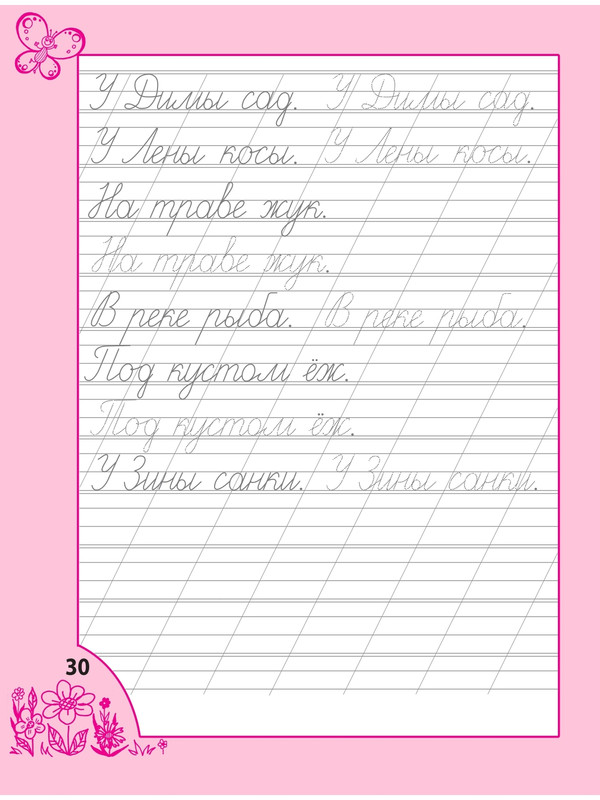 У Димы сад. У Димы сад.
У Лены косы. У Лены косы.
На траве жук.
На траве жук.
В реке рыба. В реке рыба.
Под кустом ёж.
Под кустом ёж.
У Зины санки. У Зины санки.
30